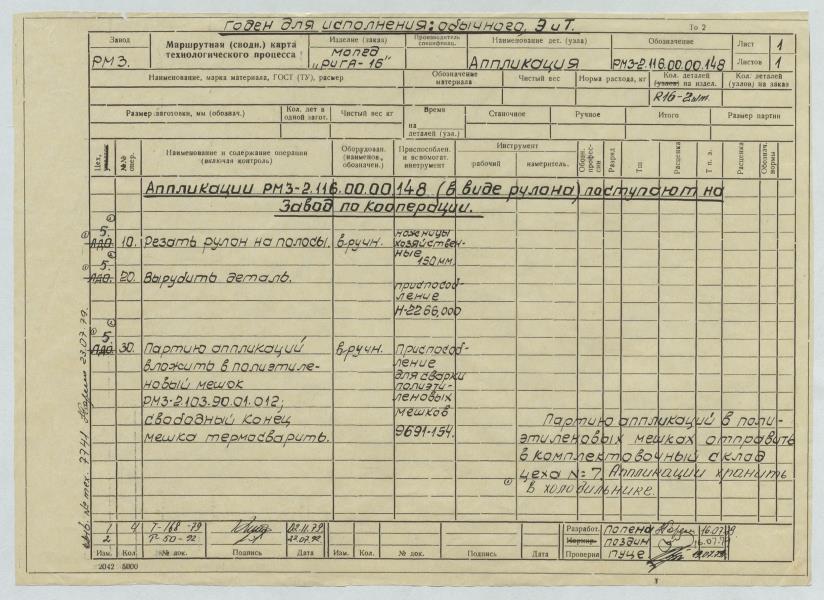 годен для исполнения: обычного, Э и Т.
То 2
Завод
РМЗ.
Маршрутная (сводн.) карта
технологического процесса
Изделие (заказ)
мопед
„Рига-16"
Производитель
спецификац.
Наименование дет. (узла)
Аппликация
Обозначение
РМЗ-2.116.00.00.148
Лист 1
Листов 1
Наименование, марка материала, ГОСТ (ТУ), размер
Обозначение
материала
Чистый вес
Норма расхода, кг
Кол. деталей
(узлов) на издел.
R16-2шт.
Кол. деталей
(узлов) на заказ
Размер заготовки, мм (обознач.)
Кол. лет в
одной загот.
Чистый вес кг
Время
на
деталей (узл.)
Станочное
Ручное
Итого
Размер партии
Цех,
№№
опер.
Наименование и содержание операции
(включая контроль)
Оборудован.
(наименов.,
обозначен.)
Приспособлен.
и вспомогат.
инструмент
Инструмент
рабочий
измеритель.
Обозн.
профес-
сии
Разряд
Тш
Расценка
Т п. з.
Расценка
Обознач.
нормы
Аппликации РМЗ-2.116.00.00.148 (в виде рулона) поступают на
завод по кооперации.
5.
ЛДО. 10. Резать рулон на полосы. вручн. ножницы
хозяйствен-
ные
150мм.
5.
ЛДО. 20. Вырубить деталь.
приспособ-
ление
Н-2266,000
5.
ЛДО. 30. Партию аппликаций вручн. Приспособ-
вложить в полиэтиле- ление
новый мешок для сварки
РМЗ-2.103.90.01.012; полиэти-
свободный конец леновых
мешка термосварить. мешков
9691-154.
Партию аппликаций в поли-
этиленовых мешках отправить
в комплектовочный склад
цеха №:7. Аппликации хранить
в холодильнике.
7741
23.07.79.
1 4 Т-168-79 02.11.79
2 Р-50-92
Изм. Кол. № док. Подпись Дата Изм. Кол. № док. Подпись Дата
Разработ. Попена 16.07.79
Нормир. Поздин 16.07.79
Проверил Пуце.
2042 5000